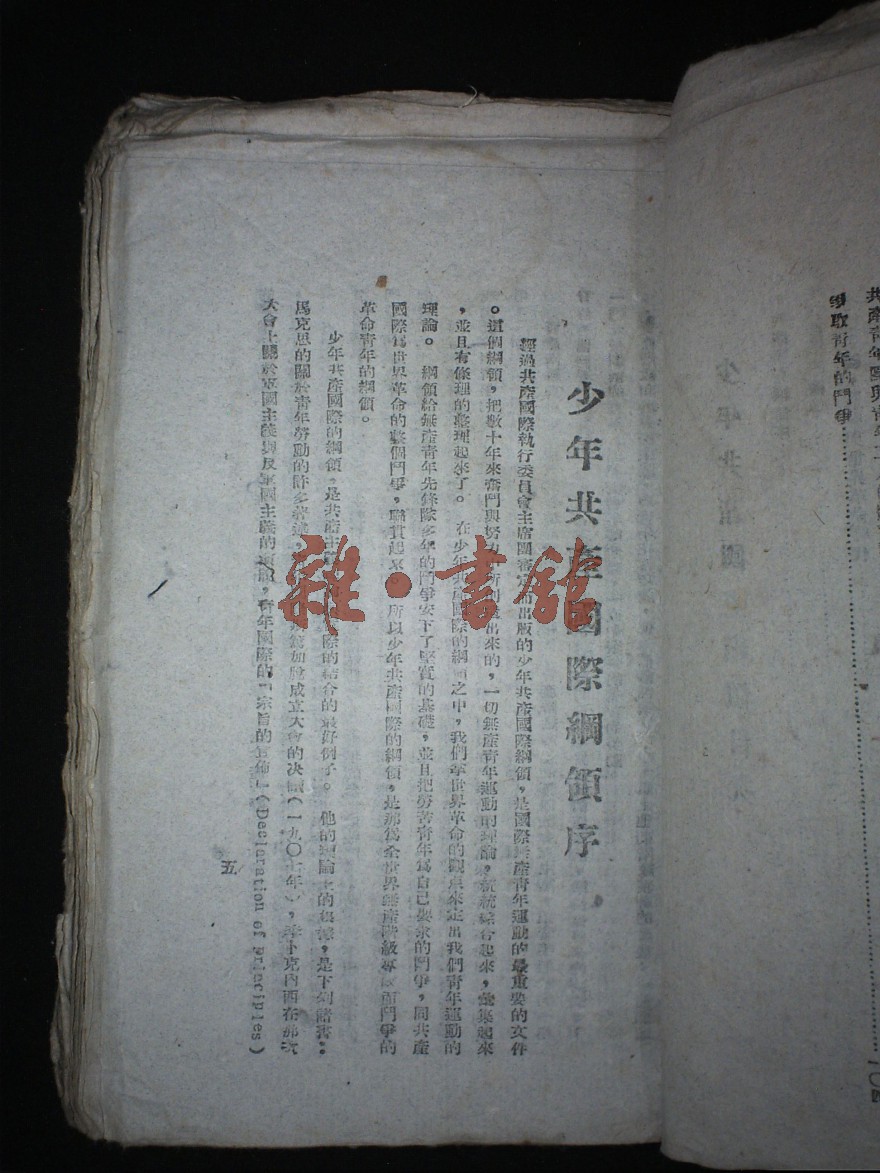 少年共產國際綱領序
經過共產國際執行委員會主席團審定而出版的少年共產國際綱領，是國際共產青年運動的最重要的文件
。這個綱領，把數十年來奮鬥與努力所創造出來的，一切無產青年運動的理論，統統綜合起來，彙集起來
，並且有條理的整理起來了。在少年共產國際的綱領之中，我們拿世界革命的觀點來定出我們青年運動的
理論。綱領給無產青年先鋒隊多年的鬥爭安下了堅實的基礎，並且把勞苦青年爲自己要求的鬥爭，同共產
國際爲世界革命的整個鬥爭，聯貫起來。所以少年共產國際的綱領，是那爲全世界無產階級專政而鬥爭的
革命青年的綱領。
少年共產國際的綱領，是共產主 際的結合的最好例子。他的理論上的根據，是下列諸書：
馬克思的關於青年勞動的許多著述， 成立大會的決議（一九〇七年），李卜克內西在那次
大會上關於軍國主義與反軍國主義的 ，青年國際的「宗旨的宣佈」（Declaration of principles）
五
雜·書館
領取青年的鬥爭……………102